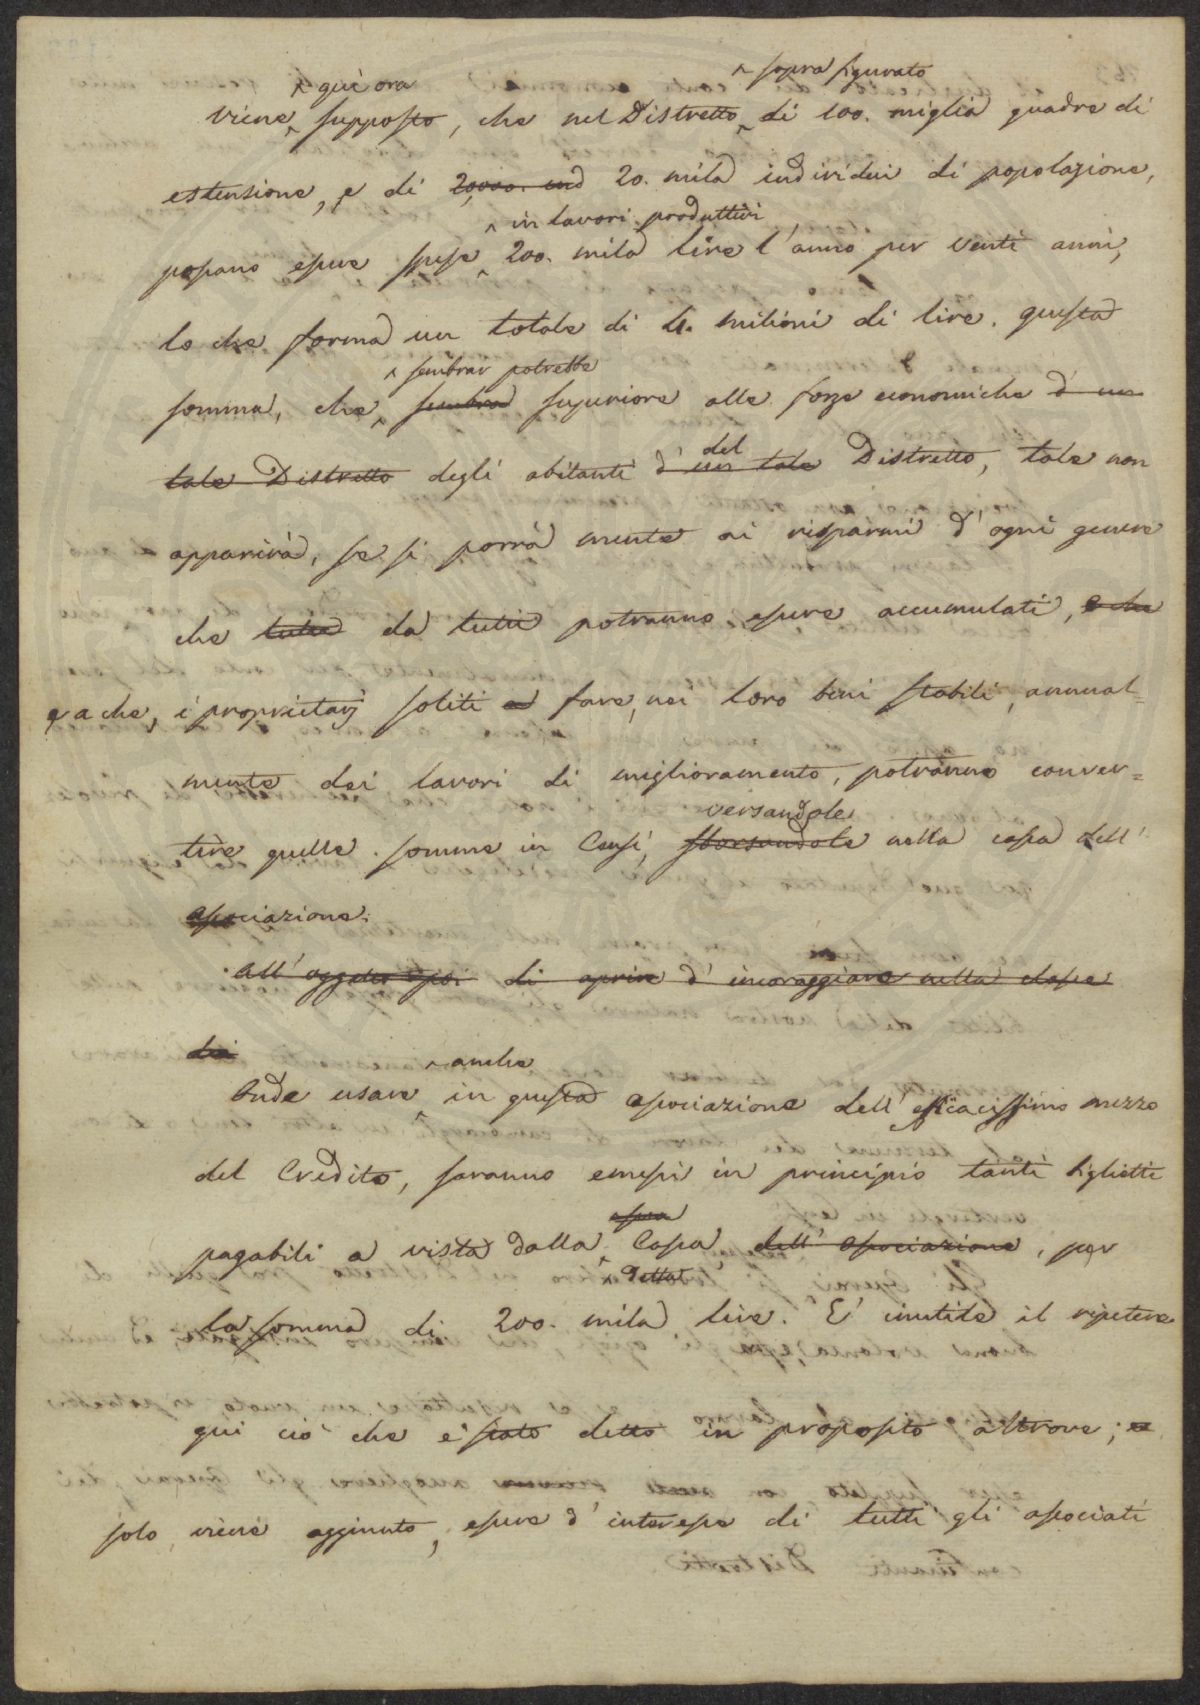 ^ qui ora ^ sopra figurato
viene ^ supposto, che nel Distretto ^ di 100. miglia quadre di
estensione, e di 20,000. ind 20. mila individui di popolazione,
^ in lavori produttivi
possano essere spese ^ 200. mila lire l'anno per venti anni,
lo che forma un totale di 4. milioni di lire. questa
^ sembrar potrebbe
somma, che ^ sembra superiore alle forze economiche d'un
tale Distretto degli abitanti d'un tale Distretto, tale non
del
apparirà, se si porrà mente ai risparmi d'ogni genere
che tutti da tutti potranno essere accumulati, e che
e a che, i proprietarj soliti a fare, nei loro beni stabili, annual=
mente dei lavori di miglioramento, potranno conver=
versandole
tire quelle somme in Censi, sborsandole nella cassa dell'
associazione.
di aprire d'incoraggiare nella classe
dei
^ anche
Onde usare ^ in questa associazione dell'efficacissimo mezzo
del Credito, saranno emessi in principio tanti biglietti
essa
pagabili a vista dalla ^ Cassa dell'associazione, per
^ detta
la somma di 200. mila lire. E' inutile il ripetere
qui ciò che è stato detto in proposito altrove; e
solo viene aggiunto, essere d'interesse di tutti gli associati